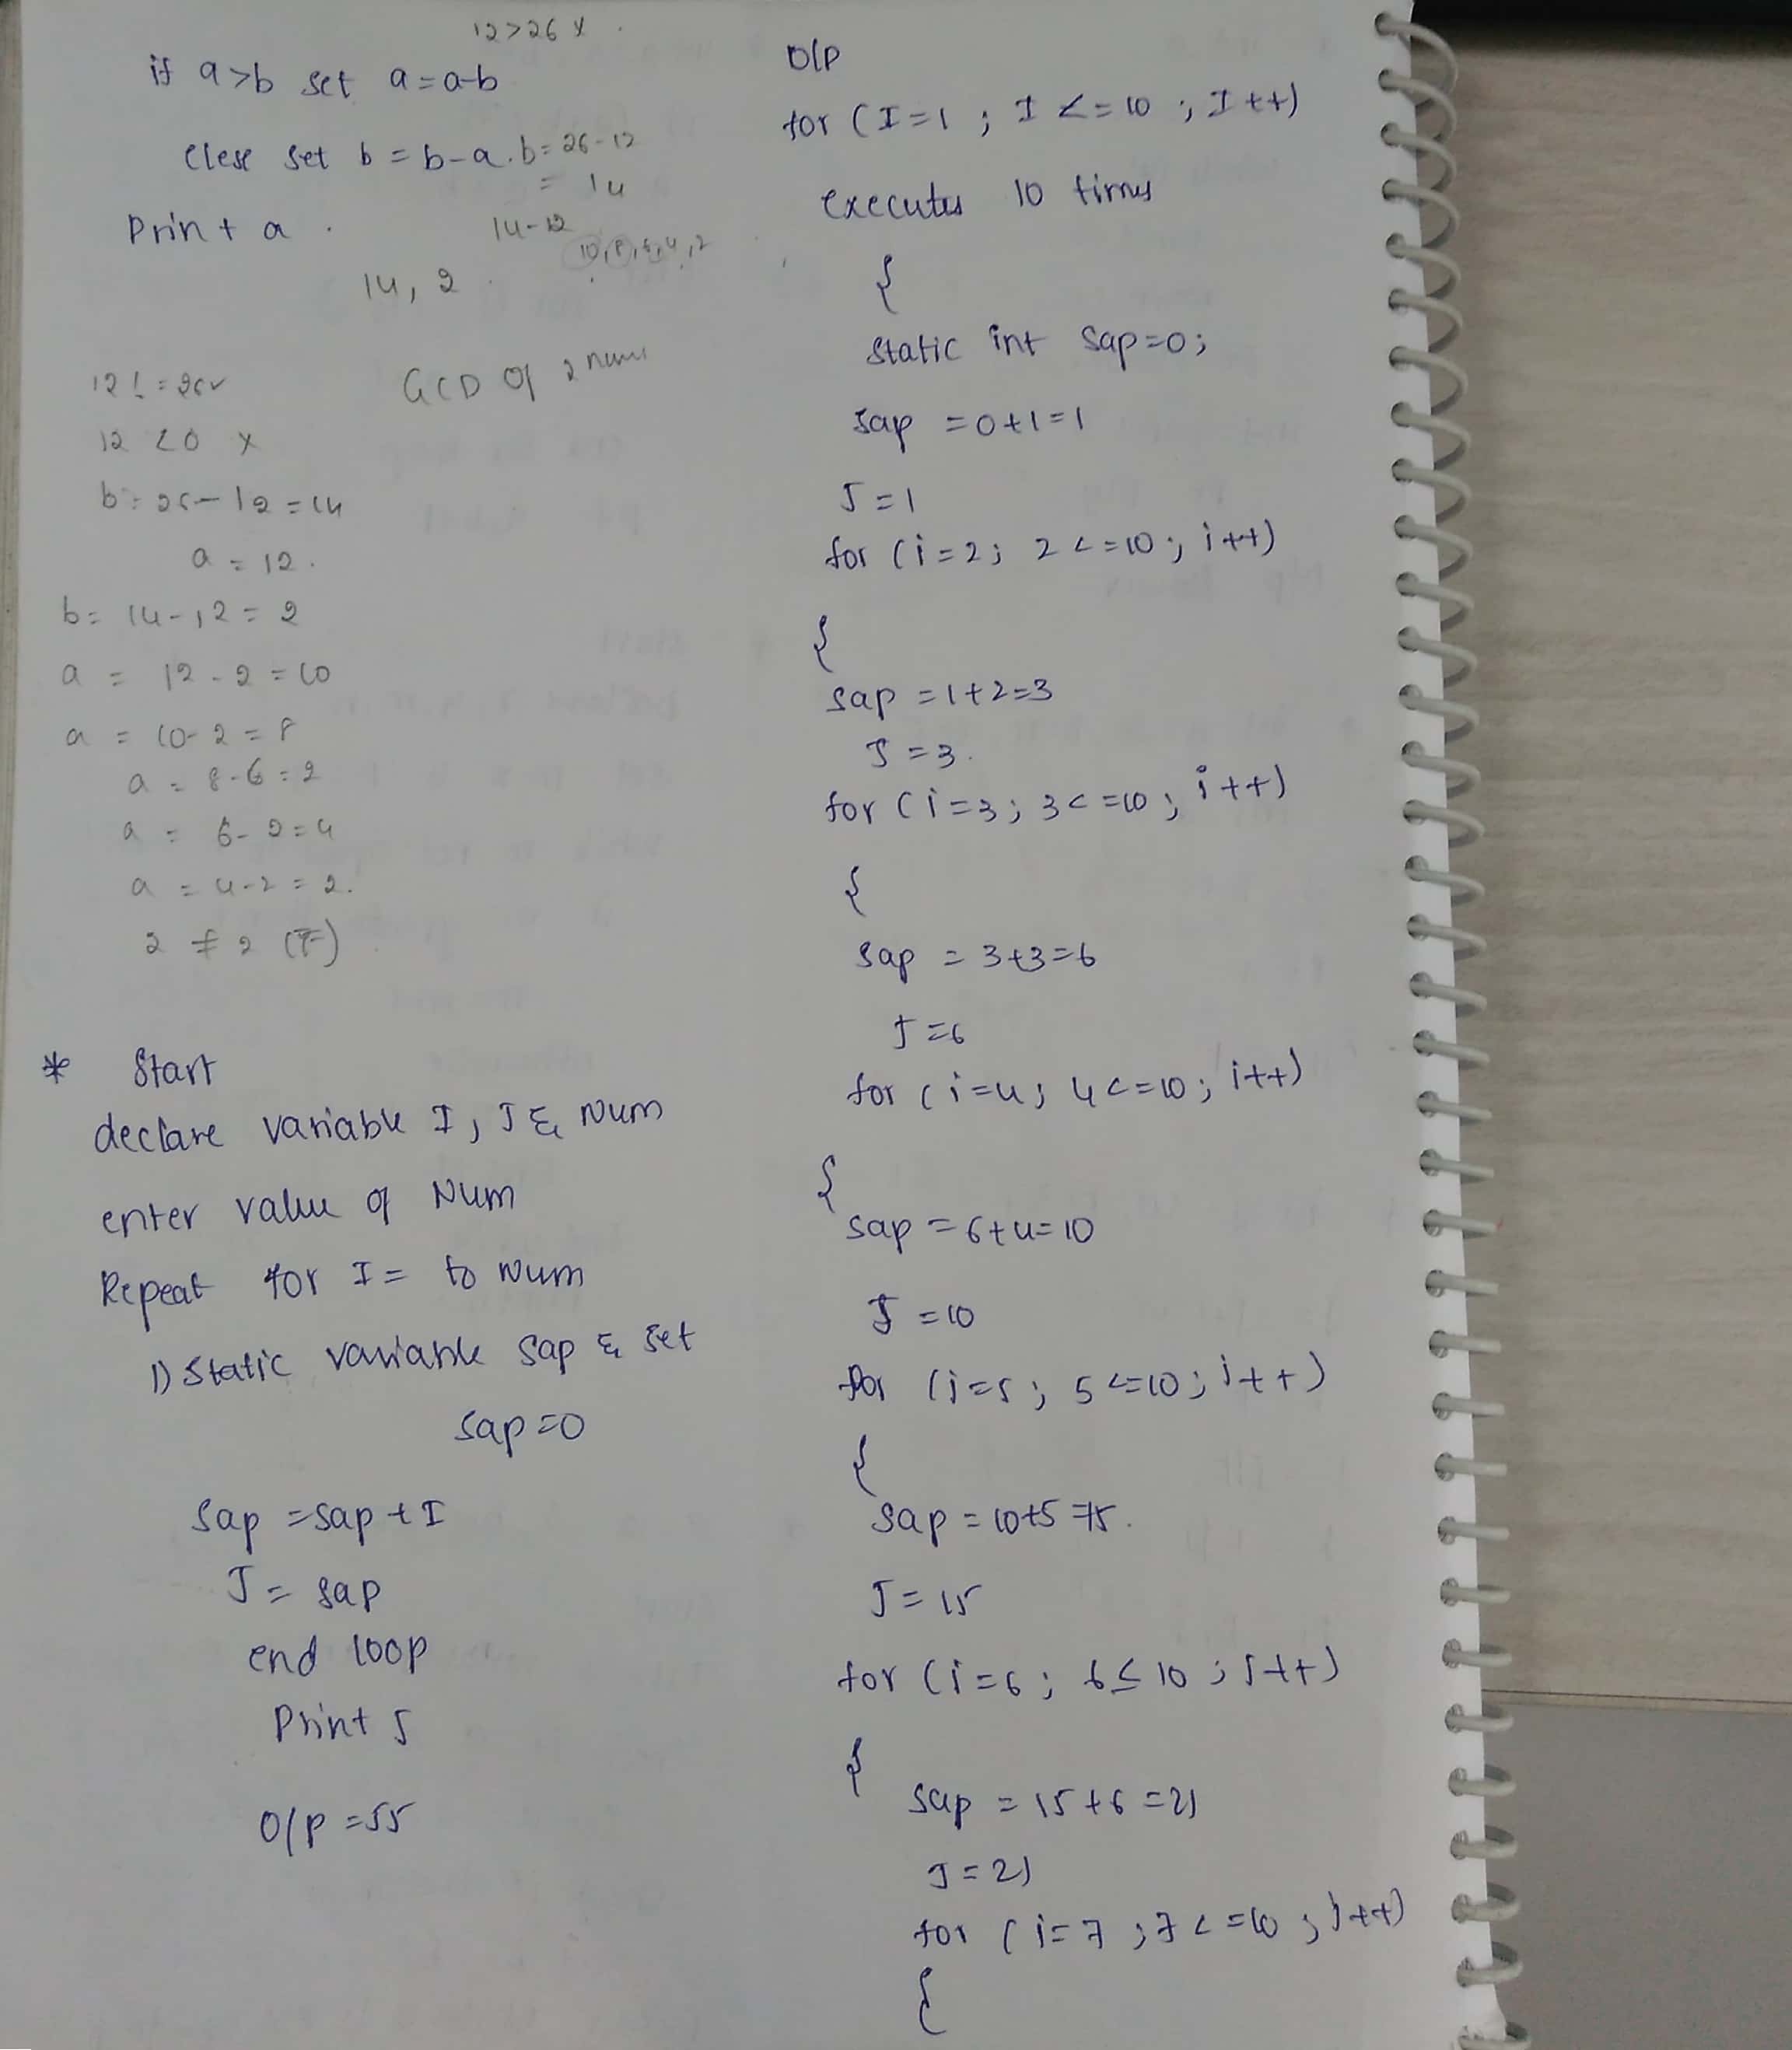 12>26 x
if a>b set a=a-b
Clese set b = b-a. b= 26-12
= 14
Print a .
14-12
10,8,6,4,2
14, 2
12 != 26✓
GCD of 2 nums
12 <0 x
b= 26-12=14
a = 12.
b= 14-12= 2
a = 12-2=10
a = 10-2=8
a = 8-6=2
a = 6-2=4
a = 4-2=2.
2 ≠ 2 (F)
* Start
declare variable I, J & Num
enter value of Num
Repeat for I= to Num
1) Static variable sap & set
sap=0
sap =sap+I
J= sap
end loop
Print J
O/P =55
O/P
for (I=1 ; I <=10 ; I++)
executes 10 times
{
static int sap=0;
sap =0+1=1
J=1
for (i=2; 2<=10; i++)
{
sap =1+2=3
J=3.
for (i=3; 3<=10; i++)
{
sap = 3+3=6
J=6
for (i=4; 4<=10; i++)
{
sap =6+4=10
J =10
for (i=5; 5<=10; i++)
{
sap =10+5=15.
J=15
for (i=6; 6≤10; i++)
{
sap =15+6=21
J=21
for (i=7;7<=10; i++)
{